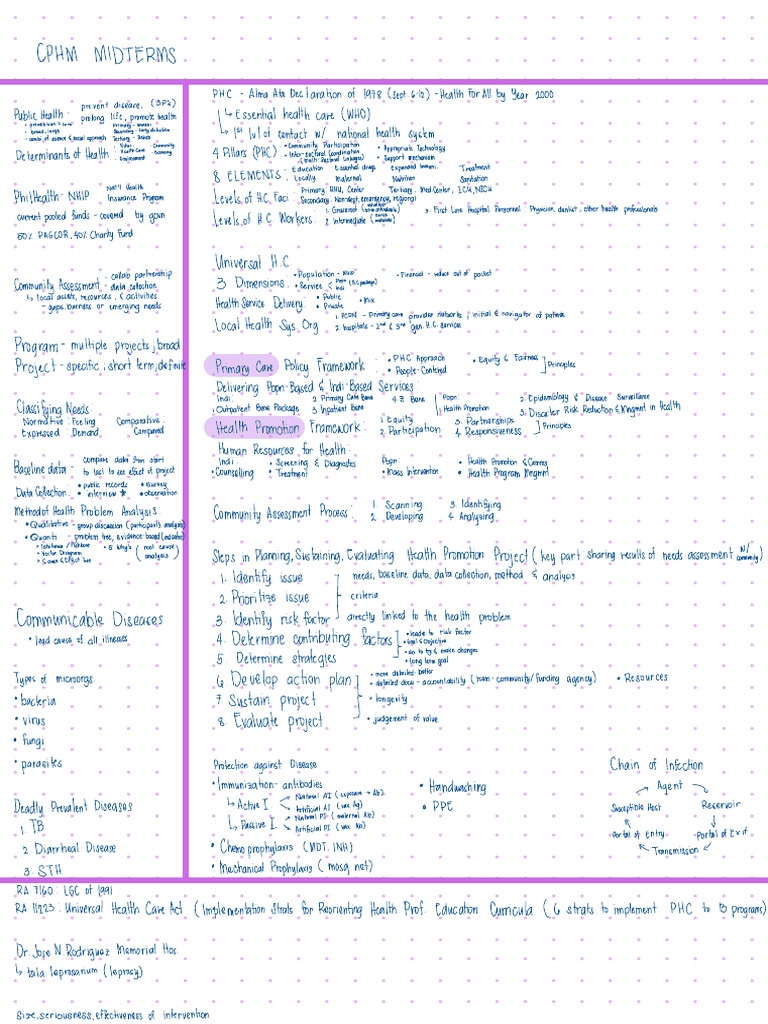 CPHM MIDTERMS
Public Health - prevent disease, (3P's)
prolong life, promote health
Determinants of Health
PhilHealth - NHIP Nat'l Health Insurance Program
current pooled funds - covered by govn
50% PAGCOR, 40% Charity Fund
Community Assessment - collab partnership
- data collection
↳ local assets, resources, & activities
- gaps, barriers or emerging needs
Program - multiple projects, broad
Project - specific, short term, definite
Classifying Needs
Normative Feeling Comparative
Expressed Demand Compared
Baseline data - compare data from start
to last to see effect of project
Data Collection • public records • survey
• interview • observation
Method of Health Problem Analysis:
• Qualitative - group discussion (participant's analysis)
• Quanti - problem tree, evidence-based (indicator)
• 5 Why's (real cause analysis)
Communicable Diseases
• lead cause of all illnesses
Types of microorgs.
• bacteria
• virus
• fungi
• parasites
Deadly Prevalent Diseases
1. TB
2. Diarrheal Disease
3. STH
PHC - Alma Ata Declaration of 1978 (Sept. 6-12) - Health For All by Year 2000
↳ Essential health care (WHO)
↳ 1st lvl of contact w/ national health system
4 Pillars (PHC) • Community Participation • Appropriate Technology
• Inter-sectoral Coordination • Support mechanism
(multi-sectoral linkages)
8 ELEMENTS: Education Essential drugs Expanded Immuni. Treatment
Locally Maternal Nutrition Sanitation
Levels of H.C Faci. Primary: RHU, Center Tertiary, Med Center,
Secondary,
Levels of H.C Workers: 1. Grassroot 3. First Line Hospital Personnel: Physician, dentist, other health professionals
2. Intermediate
Universal H.C
3 Dimensions: • Population - NHIP • Financial - reduce out of pocket
• Service
Health Service Delivery: • Public • Mix
• Private
Local Health Sys. Org 1. PCPN - Primary care provider network; initial & navigator of patients
2. hospitals - 2nd & 3rd gen. H.C. services
Primary Care Policy Framework: • PHC Approach • Equity & Fairness ] Principles
• People-Centered
Delivering Popn-Based & Indi-Based Services
Indi: 2. Primary Care Bene 4. Z Bene Popn: 2. Epidemiology & Disease Surveillance
1. Outpatient Bene Package 3. Inpatient Bene 1. Health Promotion 3. Disaster Risk Reduction & Mngment in Health
Health Promotion Framework: 1. Equity 3. Partnerships ] Principles
2. Participation 4. Responsiveness
Human Resources for Health:
Indi • Screening & Diagnostics Popn: • Health Promotion &
• Counselling • Treatment • Mass Intervention • Health Program Mngmt
Community Assessment Process: 1 Scanning 3. Identifying
2. Developing 4. Analyzing
Steps in Planning, Sustaining, Evaluating Health Promotion Project (key part sharing results of needs assessment w/ community)
1. Identify issue ] needs, baseline data, data collection, method & analysis
2. Prioritize issue criteria
3. Identify risk factor directly linked to the health problem
4. Determine contributing factors • leads to risk factor
• goal & objective
• do to try & make changes
5. Determine strategies • long term goal
6. Develop action plan • more detailed: better
• detailed docu - accountability (team-community/funding agency) • Resources
7. Sustain project • longevity
8. Evaluate project • judgement of value
Protection against Disease
• Immunization - antibodies • Handwashing
↳ Active I. Natural AI (exposure → Ag)
Artificial AI (vax Ag) • PPE
↳ Passive I. Natural PI (maternal Ab)
Artificial PI (vax Ab)
• Chemoprophylaxis (MDT, INH)
• Mechanical Prophylaxis (mosq net)
Chain of Infection
Agent
Susceptible Host Reservoir
Portal of Entry Portal of Exit
Transmission
RA 7160: LGC of 1991
RA 11223: Universal Health Care Act (Implementation Strats for Reorienting Health Prof. Education Curricula (6 strats to implement PHC to programs)
Dr. Jose N Rodriguez Memorial Hos.
↳ tala leprosarium (leprosy)
Size, seriousness, effectiveness of intervention